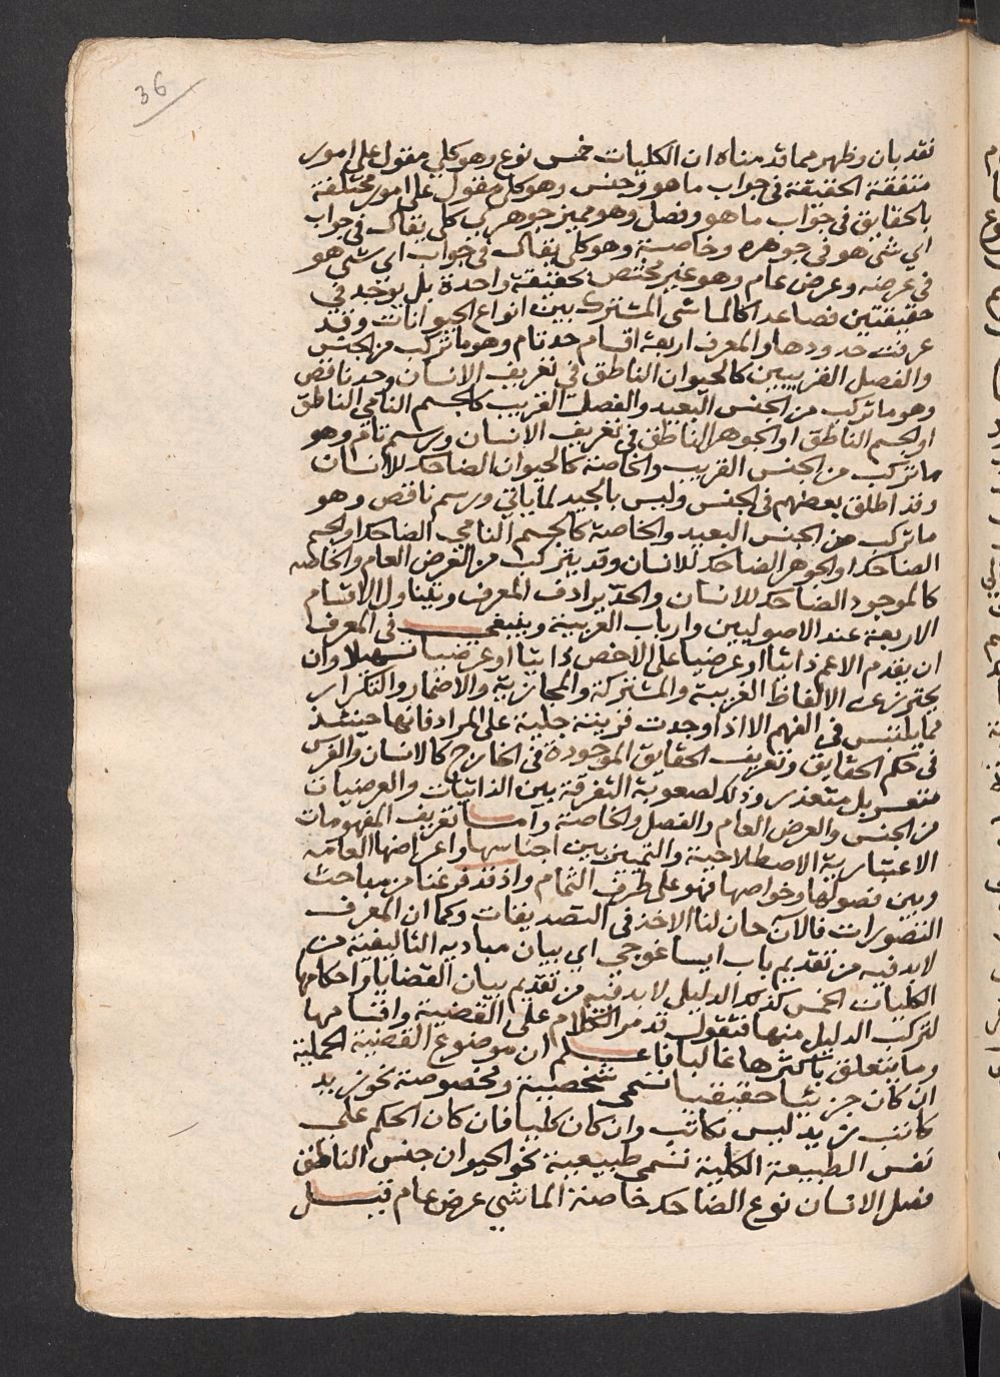 36
فقد بان وظهر مما قدمناه ان الكليات خمس نوع وهو كلي مقول على امور
متفقة الحقيقة في جواب ما هو وجنس وهو كلي مقول على امور مختلفة
بالحقايق في جواب ما هو وفصل وهو مميز جوهري كلي يقال في جواب
اي شي هو في جوهره وخاصة وهو كلي يقال في جواب اي شي هو
في عرضه وعرض عام وهو غير مختص بحقيقة واحدة بل يوجد في
حقيقتين فصاعدا كالماشي المشترك بين انواع الحيوانات وقد
عرفت حدودها والمعرف اربعة اقسام حد تام وهو ما تركب من الجنس
والفصل القريبين كالحيوان الناطق في تعريف الانسان وحد ناقص
وهو ما تركب من الجنس البعيد والفصل القريب كالجسم النامي الناطق
او الجسم الناطق او الجوهر الناطق في تعريف الانسان ورسم تام وهو
ما تركب من الجنس القريب والخاصة كالحيوان الضاحك للانسان
وقد اطلق بعضهم في الجنس وليس بالجيد لما ياتي ورسم ناقص وهو
ما تركب من الجنس البعيد والخاصة كالجسم النامي الضاحك او الجسم
الضاحك او الجوهر الضاحك للانسان وقد يتركب من العرض العام والخاصه
كالموجود الضاحك للانسان والحد يرادف المعرف ويتناول الاقسام
الاربعة عند الاصوليين وارباب العربية وينبغي في المعرف
ان يقدم الاعم ذاتيا او عرضيا على الاخص ذاتيا او عرضيا تسهيلا وان
يحترز عن الالفاظ الغريبة والمشتركة والمجازية والاضمار والتكرار
مما يلتبس في الفهم الا اذا وجدت قرينة جلية على المراد فانها حينئذ
في حكم الحقايق وتعريف الحقايق الموجودة في الخارج كالانسان والفرس
متعسر بل متعذر وذلك لصعوبة التفرقة بين الذاتيات والعرضيات
من الجنس والعرض العام والفصل والخاصة وأما تعريف المفهومات
الاعتبارية الاصطلاحية والتمييز بين اجناسها واعراضها العامه
وبين فصولها وخواصها فهو على طرف الثمام واذ قد فرغنا من مباحث
التصورات فالآن حان لنا الاخذ في التصديقات وكما ان المعرف
لابد فيه من تقديم باب ايساغوجي اي بيان مباديه التاليفية من
الكليات الخمس كذلك الدليل لابد فيه من تقديم بيان القضايا واحكامها
لتركب الدليل منها فنقول قد مر الكلام على القضية واقسامها
وما يتعلق باكثرها غالبا فاعلم ان موضوع القضية الحملية
ان كان جزئيا حقيقيا تسمى شخصية ومخصوصة نحو زيد
كاتب زيد ليس بكاتب وان كان كليا فان كان الحكم على
نفس الطبيعة الكلية تسمى طبيعية نحو الحيوان جنس الناطق
فصل الانسان نوع الضاحك خاصة الماشي عرض عام قيل